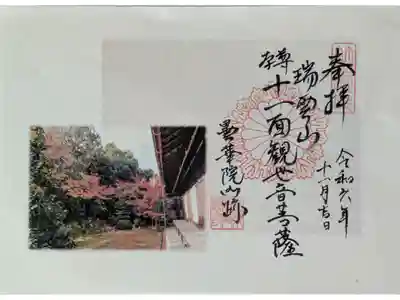 奉拝
令和六年
十一月吉日
瑞雲山
本尊
十一面観世音菩薩
曇華院門跡